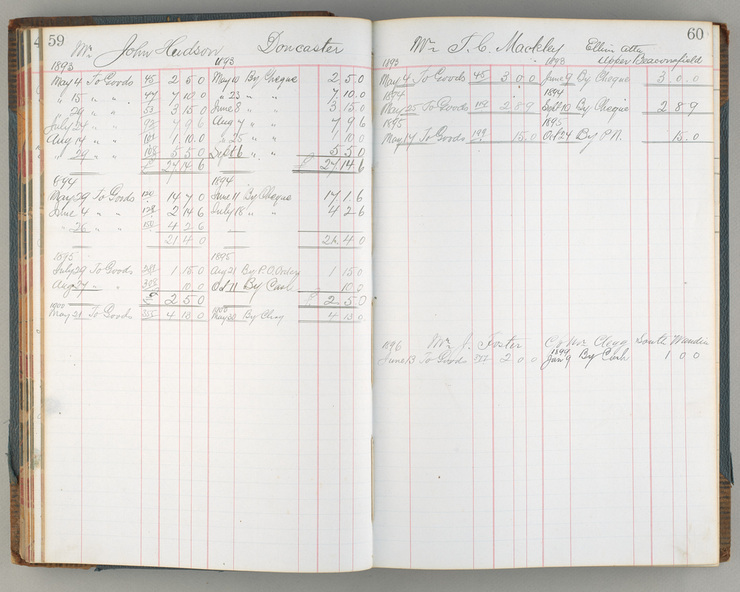 59
Mr John Hudson Doncaster
1893 1893
May 4 To Goods 45 2 5 0 May 10 By Cheque 2 5 0
" 15 " " 47 7 10 0 " 23 " " 7 10 0
" 29 " " 3 15 0 June 8 " " 3 15 0
July 24 " " 7 9 6 Aug 7 " 7 9 6
Aug 14 " " 1 10 0 " 25 " " 1 10 0
" 24 " " 5 5 0 Sept 6 " " 5 5 0
£ 27 14 6 £ 27 14 6
1894 1894
May 29 To Goods 14 7 0 June 11 By Cheque 17 1 6
June 4 " " 2 14 6 July 18 " " 4 2 6
" 26 " " 4 2 6
21 4 0 21 4 0
1895 1895
July 29 To Goods 1 15 0 Aug 21 By P.O. Order 1 15 0
Aug 27 " " 10 0 Oct 11 By Cash 10 0
£ 2 5 0 £ 2 5 0
1900 1900
May 21 To Goods 4 13 0 May By Cheq 4 13 0
60
Mr T. C. Mackley
Upper Beaconsfield
1893 1893
May 4 To Goods 45 3 0 0 June 9 By Cheque 3 0 0
1894 1894
May 25 To Goods 2 8 9 Sept 10 By Cheque 2 8 9
1895 1895
May 14 To Goods 199 15 0 Oct 24 By P.N. 15 0
1896 Mr J. Foster Clegg South Wandin
1899
June 13 To Goods 2 0 0 Jan 9 By Cash 1 0 0